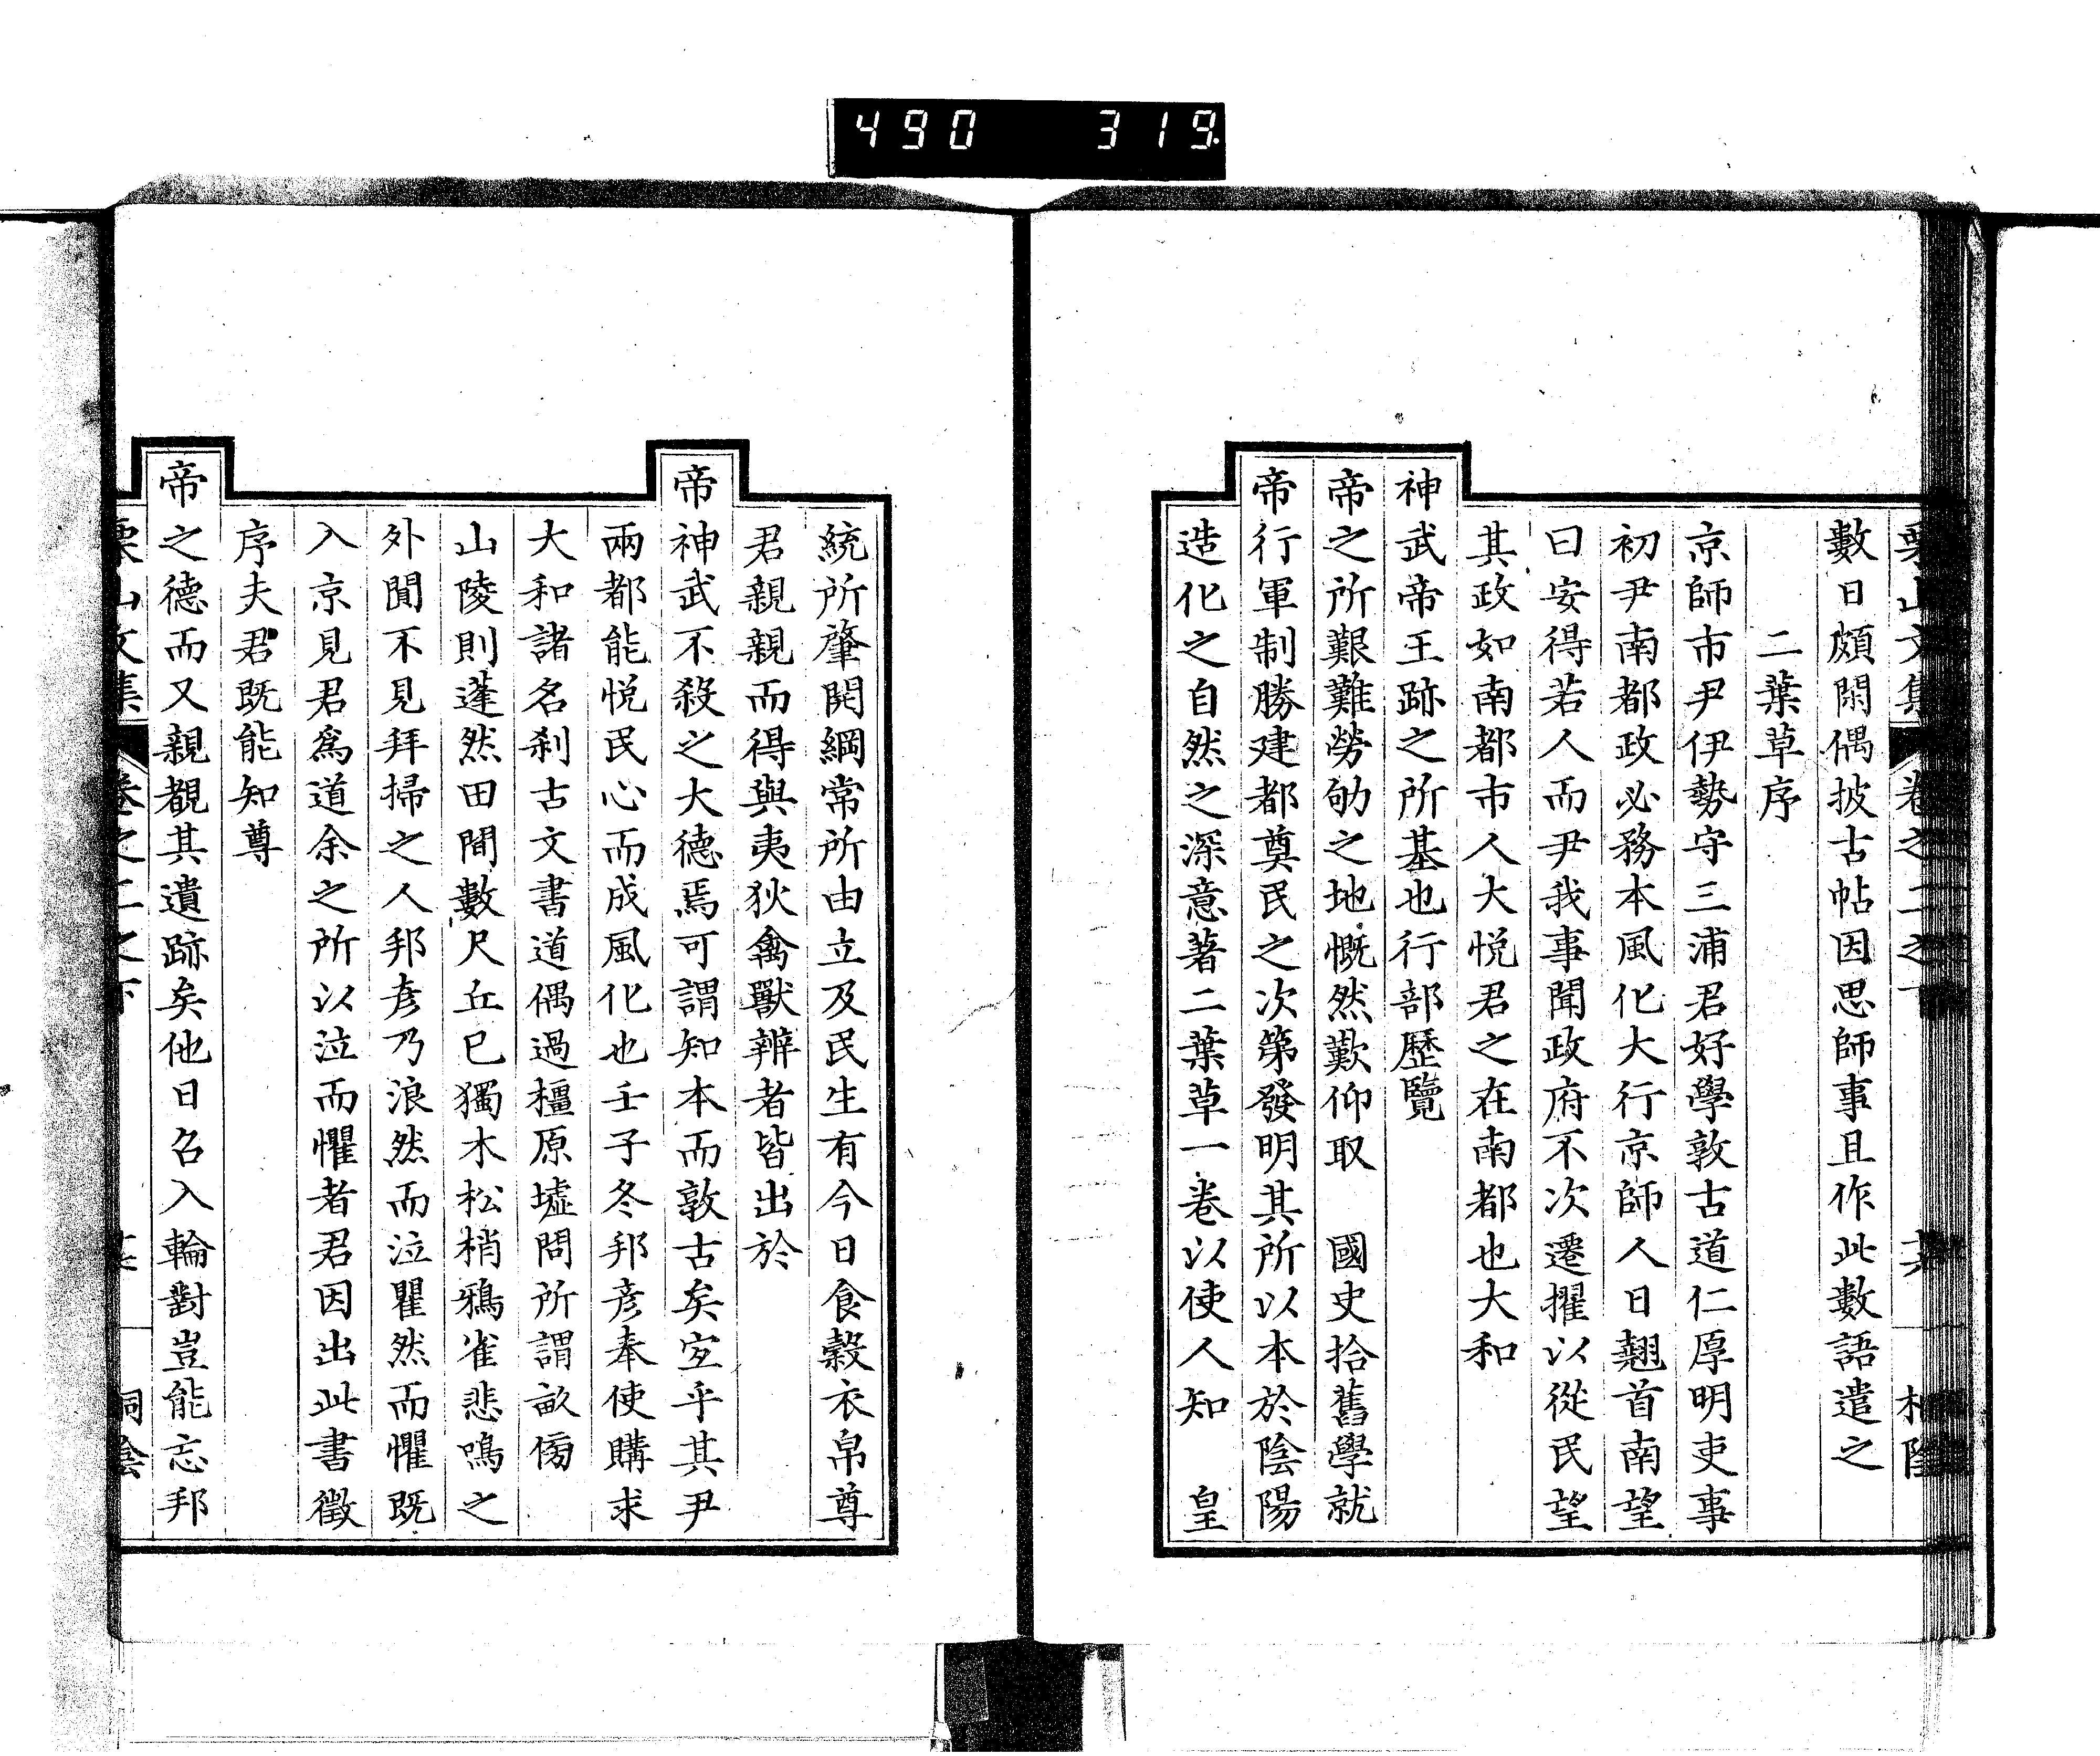 490 319
栗山文集 卷之二之下 桐陰
數日頗閑偶披古帖因思師事且作此數語遣之
二葉草序
京師市尹伊勢守三浦君好學敦古道仁厚明吏事
初尹南都政必務本風化大行京師人日翹首南望
曰安得若人而尹我事聞政府不次遷擢以從民望
其政如南都市人大悅君之在南都也大和
神武帝王跡之所基也行部歷覽
帝之所艱難勞劬之地慨然歎仰取 國史拾舊學就
帝行軍制勝建都奠民之次第發明其所以本於陰陽
造化之自然之深意著二葉草一卷以使人知 皇
統所肇開綱常所由立及民生有今日食穀衣帛尊
君親親而得與夷狄禽獸辨者皆出於
帝神武不殺之大德焉可謂知本而敦古矣宐乎其尹
兩都能悅民心而成風化也壬子冬邦彦奉使購求
大和諸名刹古文書道偶過橿原墟問所謂畝傍
山陵則蓬然田間數尺丘已獨木松梢鴉雀悲鳴之
外聞不見拜掃之人邦彦乃浪然而泣瞿然而懼既
入京見君爲道余之所以泣而懼者君因出此書徵
序夫君既能知尊
帝之德而又親覩其遺跡矣他日召入輪對豈能忘邦
栗山文集 卷之二之下 桐陰